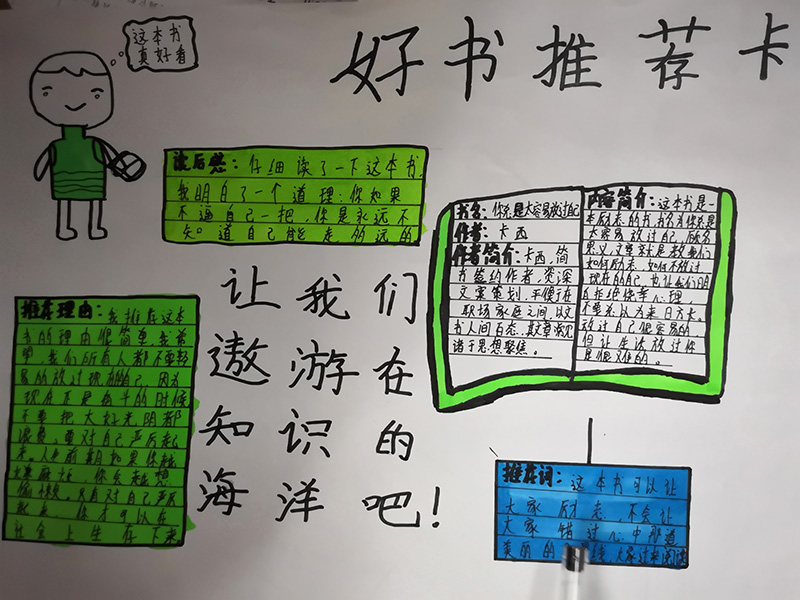 这本书
真好看
好书推荐卡
读后感:仔细读了一下这本书,
我明白了一个道理:你如果
不逼自己一把,你是永远不
知道自己能走多远的
书名:你总是太容易放过自己
作者:卡西
作者简介:卡西,简
书签约作者,资深
文案策划,
职场家庭之间,以文
书人间百态,其文章常见
诸于思想聚焦。
内容简介:这本书是一
本励志的书,书名为你总是
太容易放过自己,顾名
思义,文章就是教我们
如何励志,如何不放过
现在的自己,也让我们明
白
不要总以为来日方长。
放过自己很容易的
但让生活放过你
是很难的。
让我们
遨游在
知识的
海洋吧!
推荐理由:我推荐这本
书的理由很简单,我希
望,我们所有人都不要轻
易的放过现在的自己,因为
现在正是奋斗的时候
不要把大好光阴都
浪费,要对自己严厉起
来。人生前期如果你越
嫌麻烦,
只有对自己严厉
起来,你才可以在
社会上生存下来。
推荐词:这本书可以让
大家励志,不会让
大家错过心中那道
美丽的 大家过来阅读